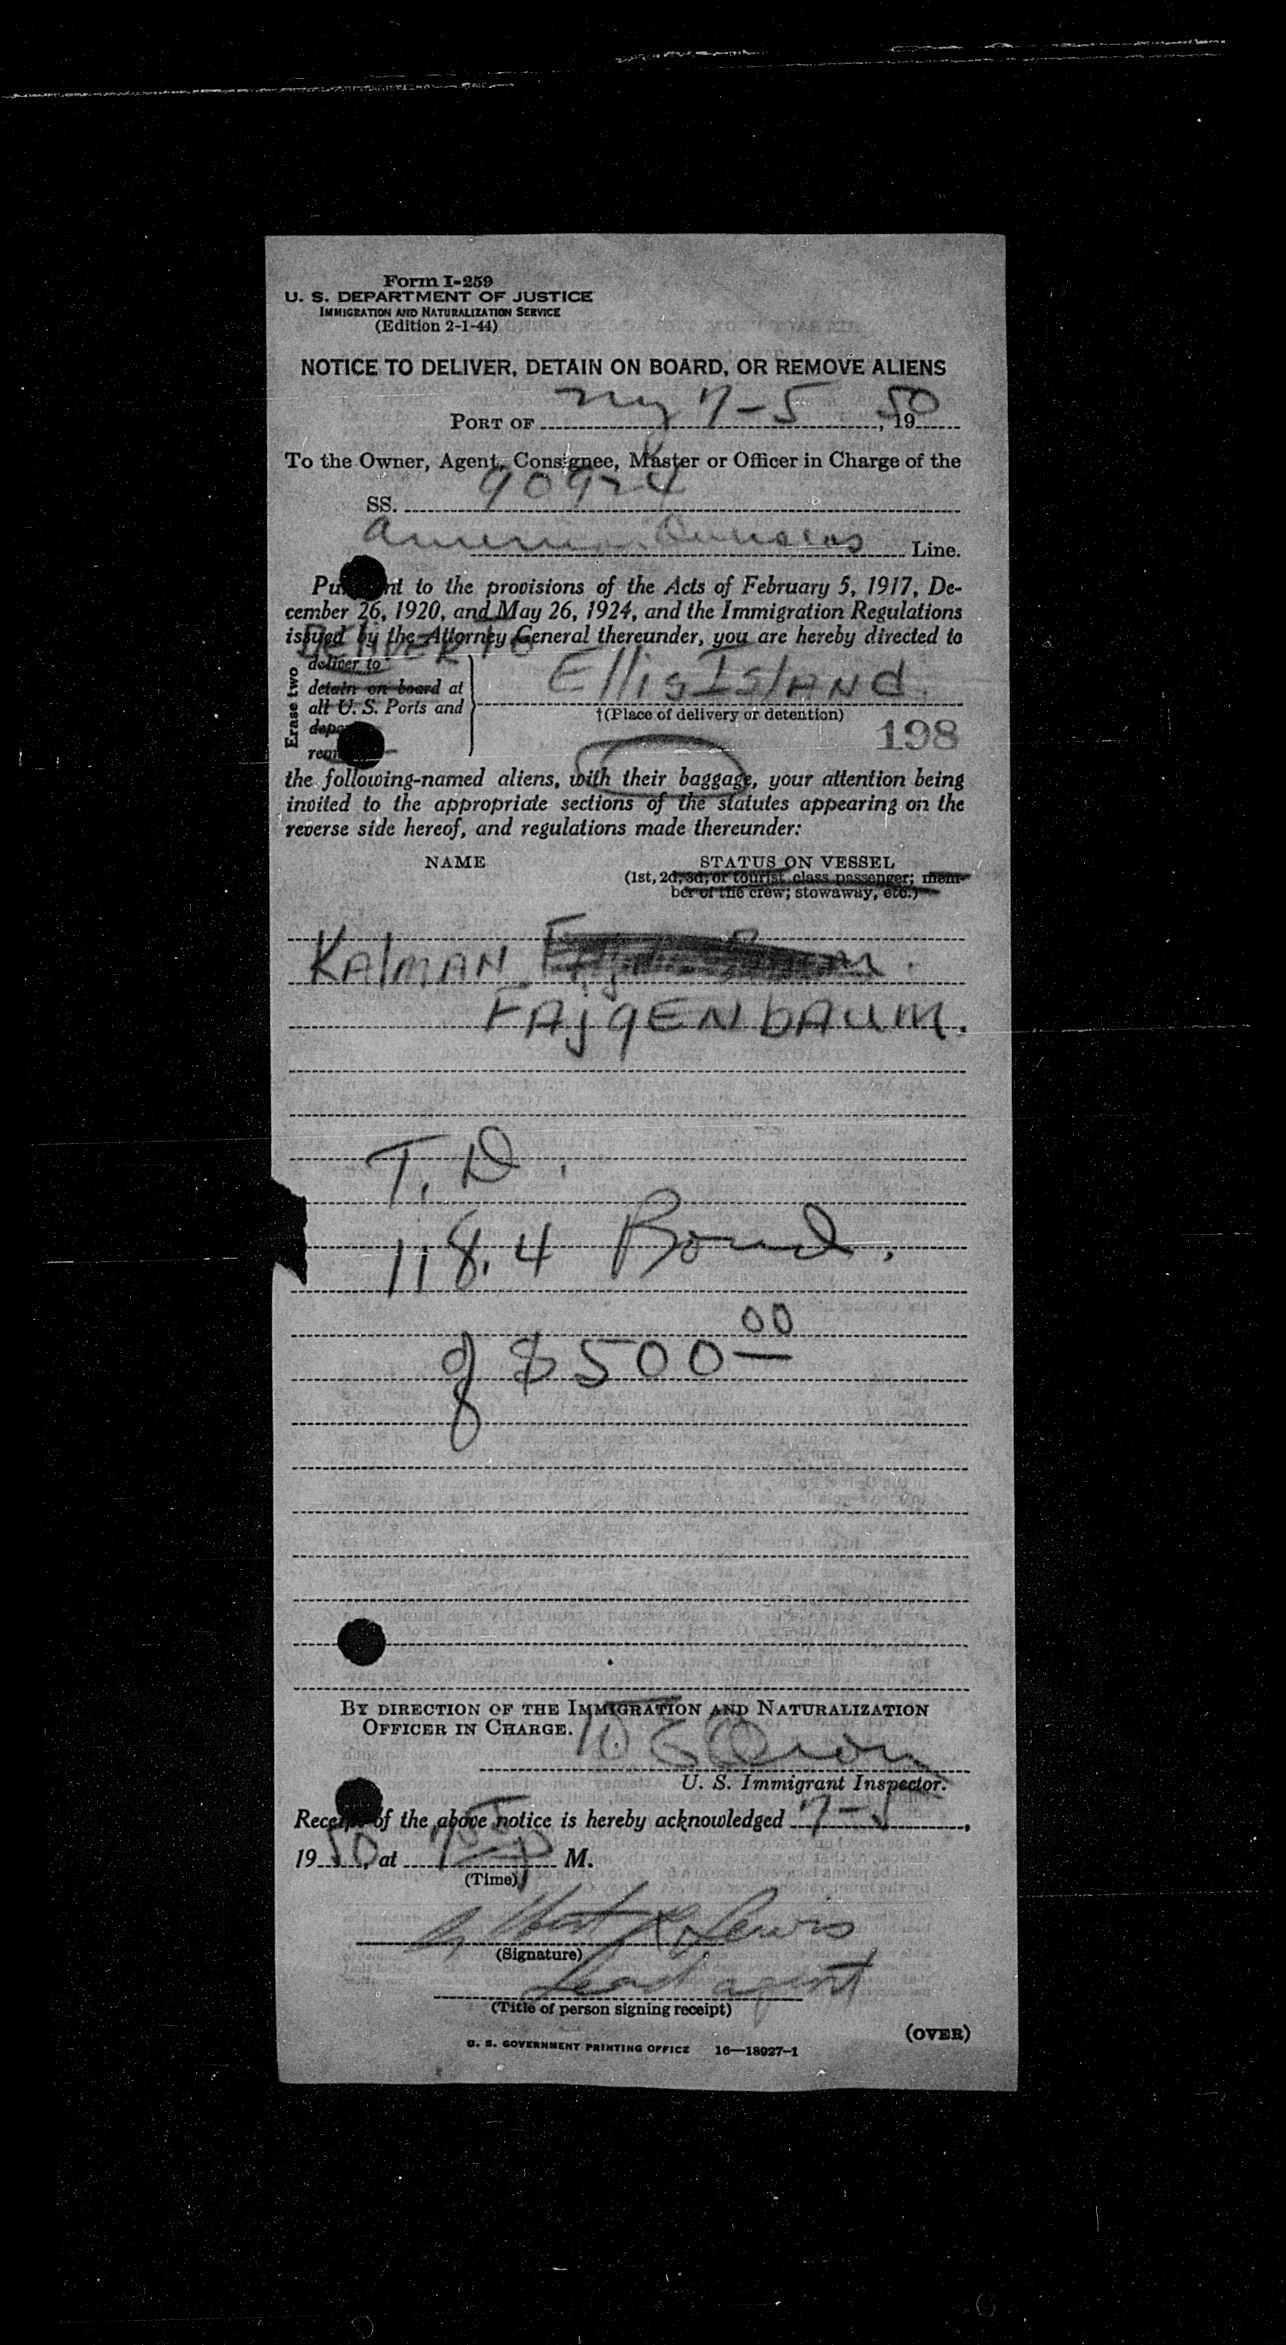 Form I-259
U. S. DEPARTMENT OF JUSTICE
IMMIGRATION AND NATURALIZATION SERVICE
(Edition 2-1-44)
NOTICE TO DELIVER, DETAIN ON BOARD, OR REMOVE ALIENS
PORT OF NY 7-5, 1950
To the Owner, Agent, Consignee, Master or Officer in Charge of the
SS. 90924
American Overseas Line.
Pu nt to the provisions of the Acts of February 5, 1917, De-
cember 26, 1920, and May 26, 1924, and the Immigration Regulations
issued by the Attorney General thereunder, you are hereby directed to
DELIVER TO
Erase two
deliver to
detain on board at
all U. S. Ports and
Ellis Island
†(Place of delivery or detention)
198
the following-named aliens, with their baggage, your attention being
invited to the appropriate sections of the statutes appearing on the
reverse side hereof, and regulations made thereunder:
NAME STATUS ON VESSEL
(1st, 2d, 3d, or tourist class passenger; mem-
ber of the crew; stowaway, etc.)
KAlMAN
FAjgENbAUM.
T. D.
118.4 Bond.
of $500 00
BY DIRECTION OF THE IMMIGRATION AND NATURALIZATION
OFFICER IN CHARGE.
U. S. Immigrant Inspector.
Receipt of the above notice is hereby acknowledged 7-5,
1950, at M.
(Time)
Lewis
(Signature)
agent
(Title of person signing receipt)
(OVER)
U. S. GOVERNMENT PRINTING OFFICE 16—18027-1